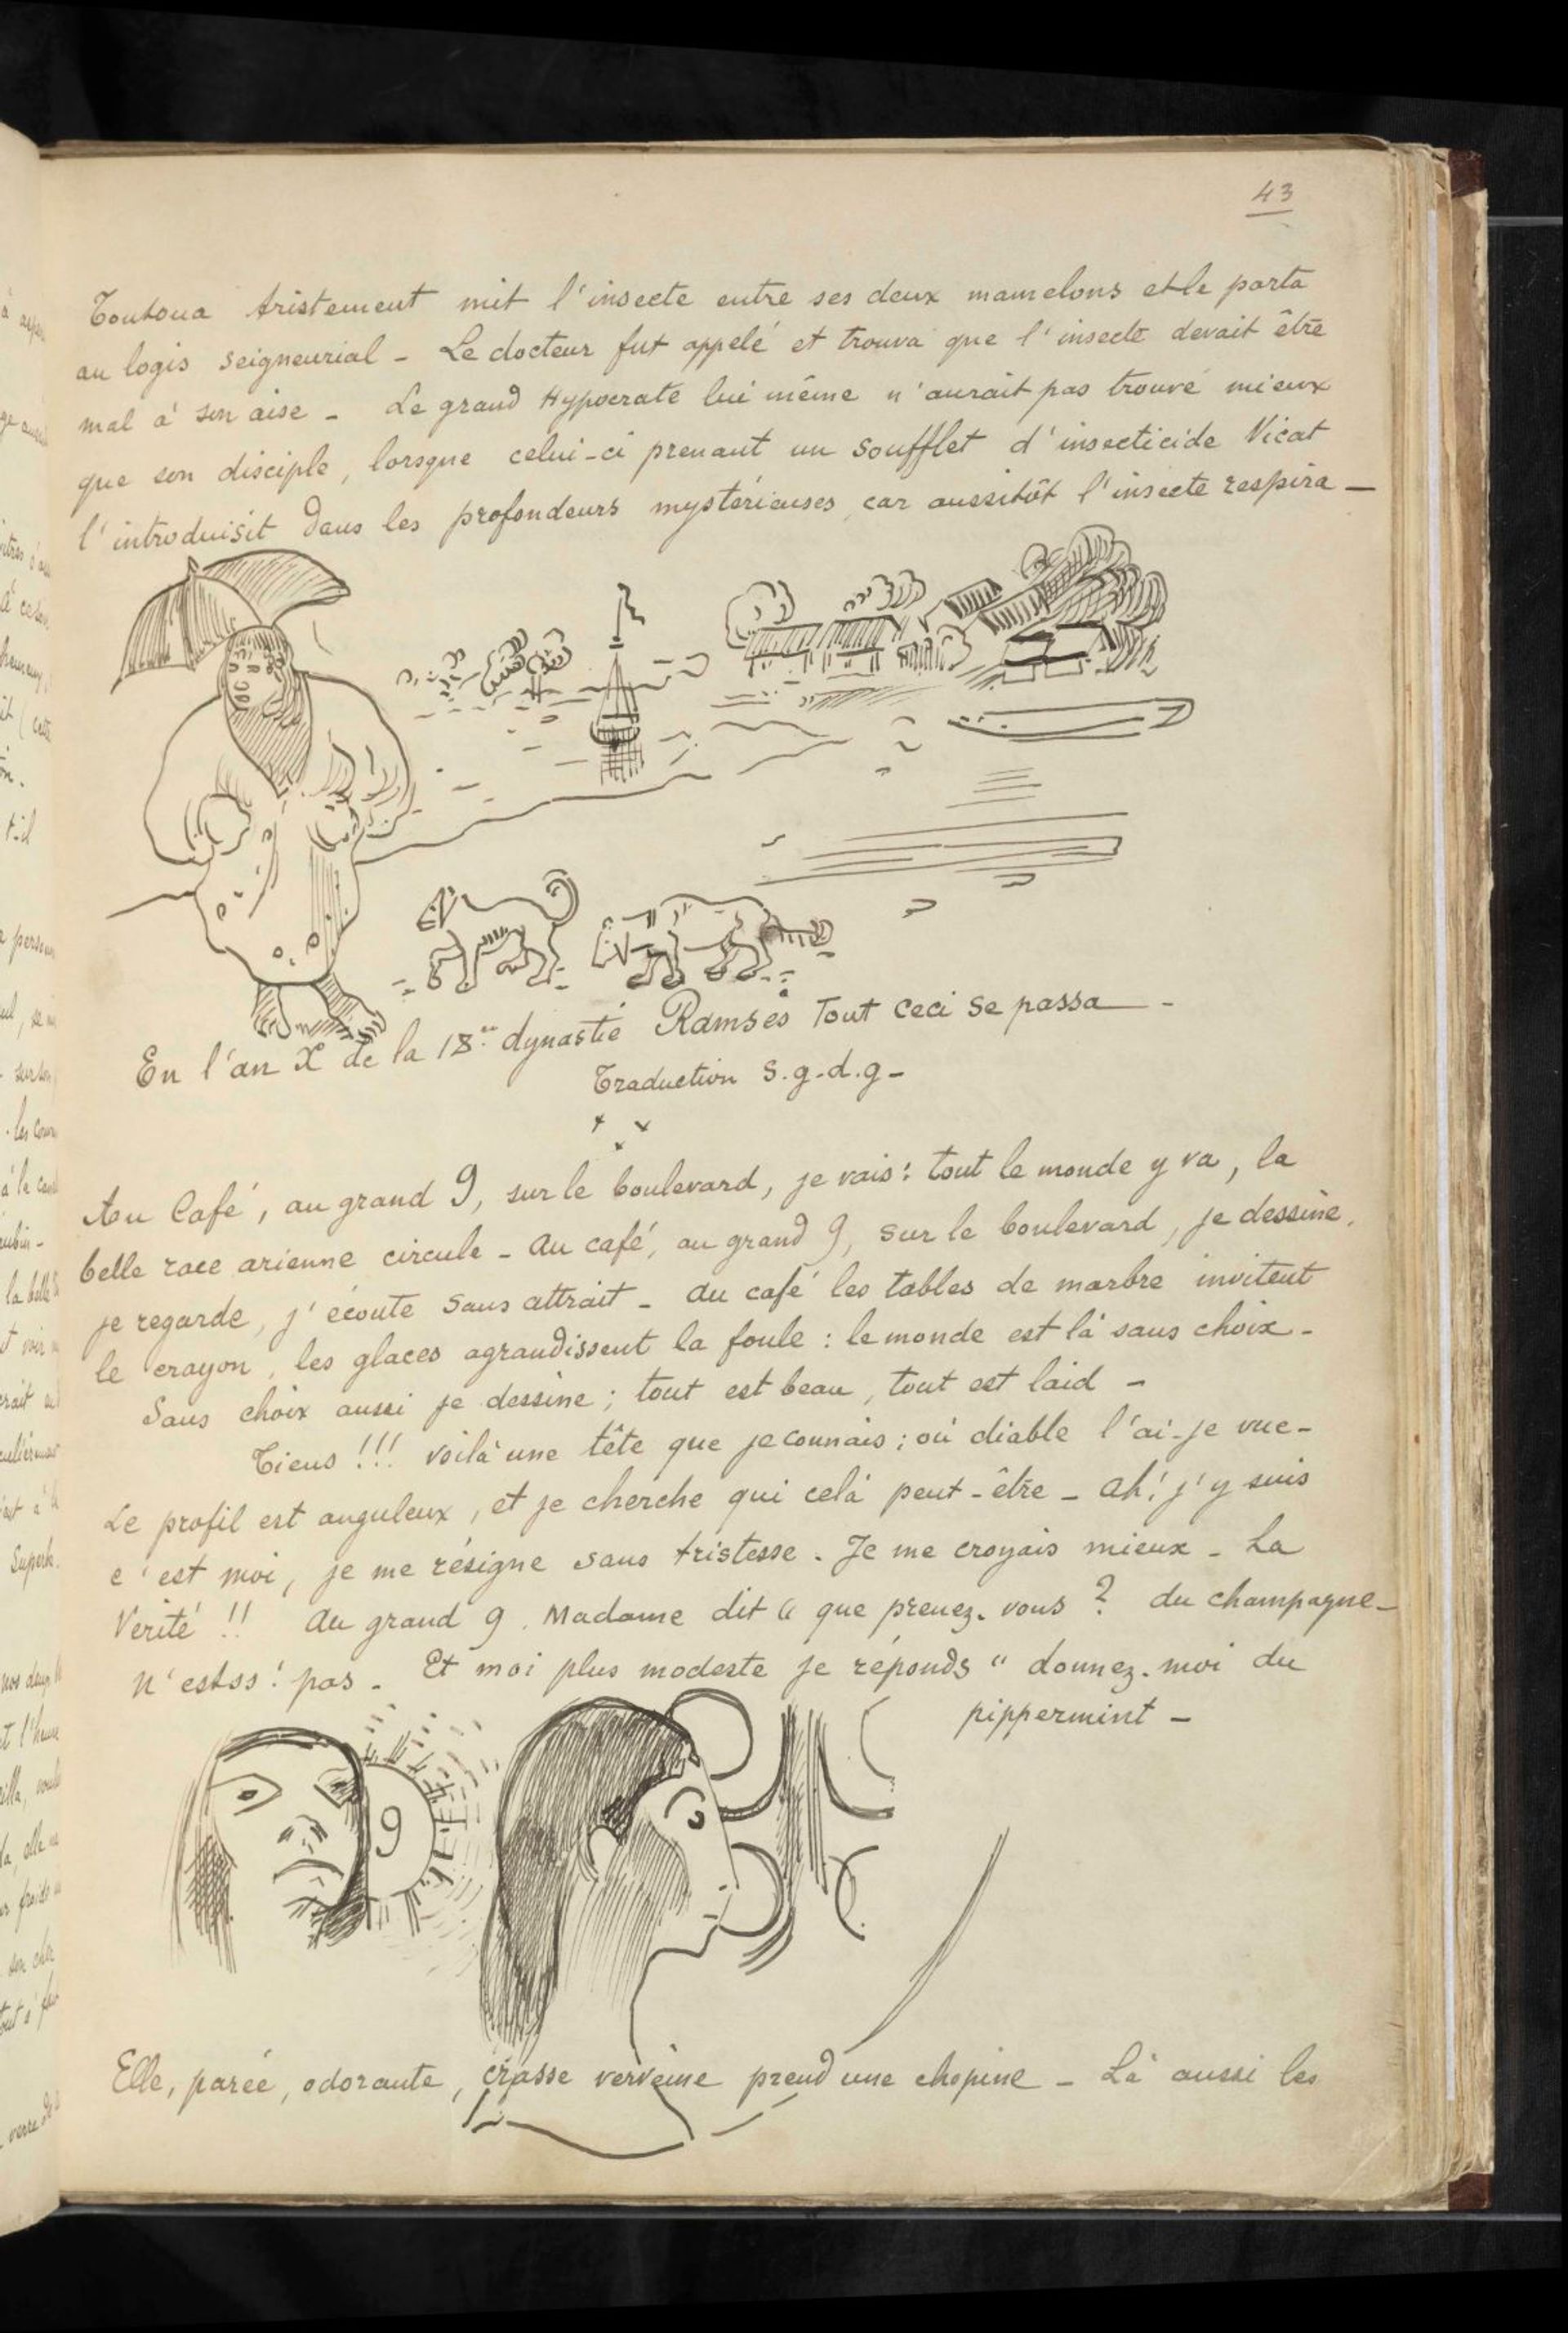 43
Toutoua tristement mit l'insecte entre ses deux mamelons et le porta
au logis seigneurial - Le docteur fut appelé et trouva que l'insecte devait être
mal à son aise - Le grand Hypocrate lui même n'aurait pas trouvé mieux
que son disciple, lorsque celui-ci prenant un soufflet d'insecticide Vicat
l'introduisit dans les profondeurs mystérieuses, car aussitôt l'insecte respira -
En l'an X de la 18me dynastie Ramsès Tout ceci se passa -
Traduction s.g.d.g -
Au Café, au grand 9, sur le boulevard, je vais: tout le monde y va, la
belle race arienne circule - Au café, au grand 9, sur le boulevard, je dessine,
je regarde, j'écoute sans attrait - Au café les tables de marbre invitent
le crayon, les glaces agrandissent la foule : le monde est là sans choix -
Sans choix aussi je dessine ; tout est beau, tout est laid -
Tiens !!! voilà une tête que je connais ; où diable l'ai-je vue -
Le profil est anguleux, et je cherche qui celà peut-être - Ah! j'y suis
c'est moi, je me résigne sans tristesse. Je me croyais mieux - La
Vérité !! Au grand 9. Madame dit " que prenez-vous ? du champagne -
N'estss! pas - Et moi plus modeste je réponds " donnez-moi du
pippermint -
9
Elle, parée, odorante, crasse verveine prend une chopine - Là aussi les